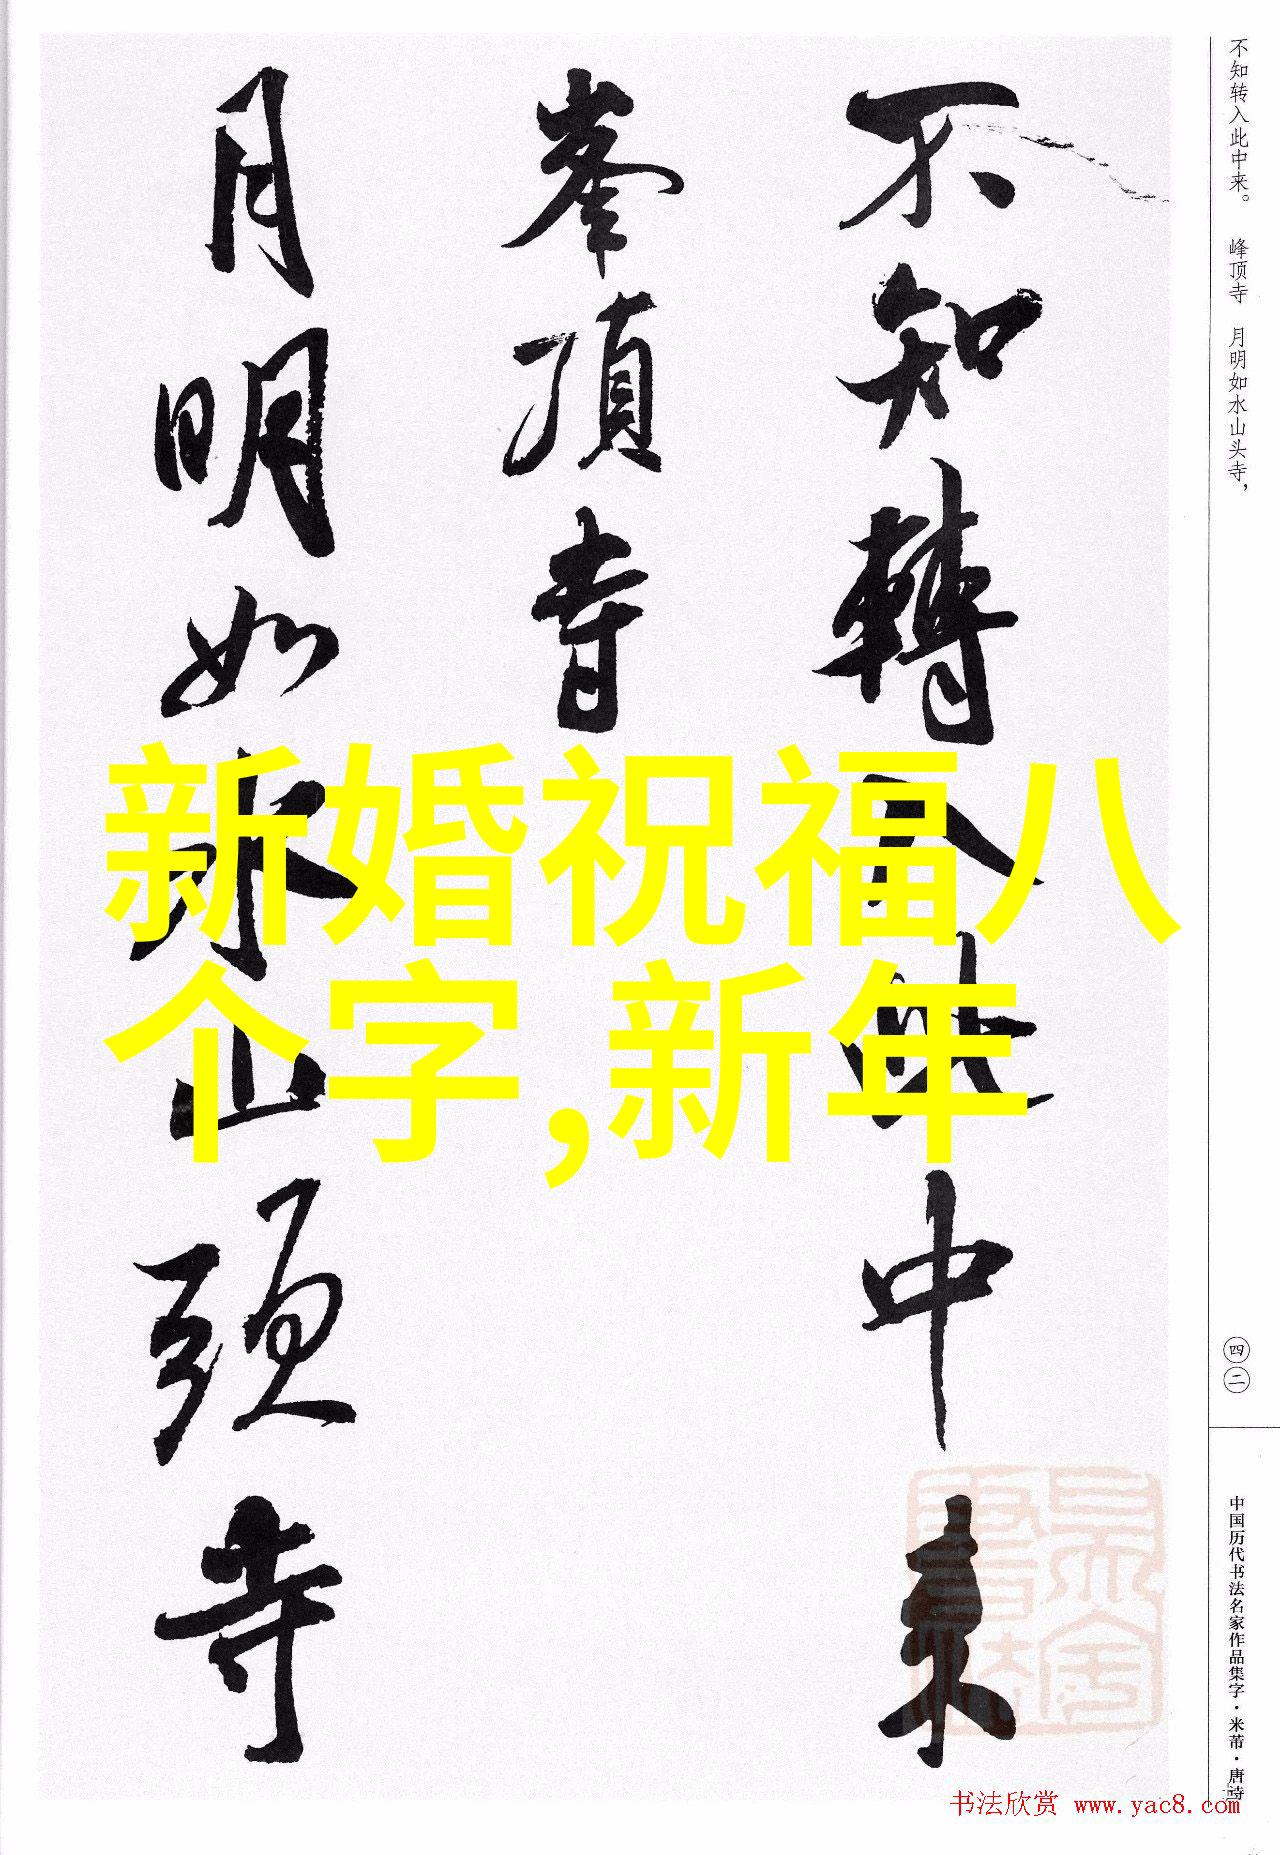 不知转入此中来。 峰顶寺 月明如水山头寺，
不知轉入此中来
峯頂寺
月明如水山頭寺
新婚祝福八
个字,新年
四二
中国历代书法名家作品集字·米芾·唐诗
书法欣赏 www.yac8.com